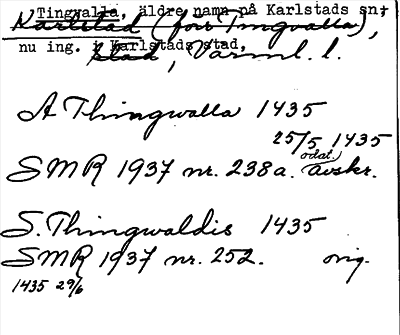 Tingvalla, äldre namn på Karlstads sn;
Karlstad (förr Tingvalla),
nu ing. i Karlstads stad,
stad, Värml. l.
A Thingwalla 1435
25/5 1435
odat.
SMR 1937 nr. 238a. avskr.
S. Thingwaldis 1435
SMR 1937 nr. 252. orig.
1435 29/6